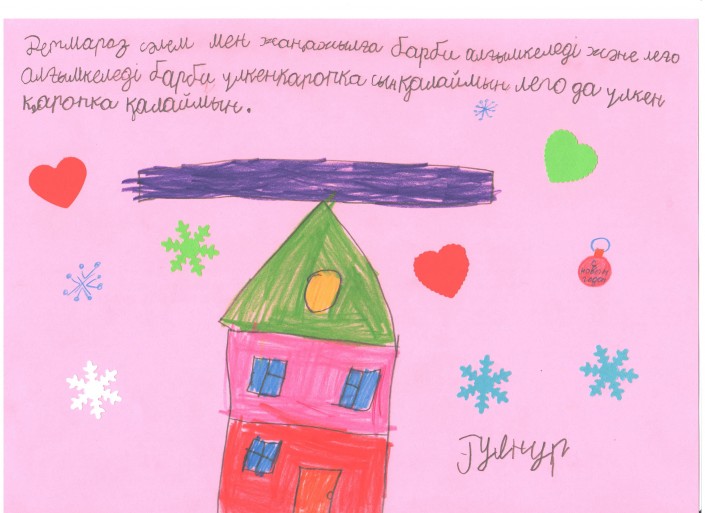 Детмароз сәлем мен жаңажылға барби алғымкеледі және лего
алғымкеледі барби үлкенкаропка сынқалаймын лего да үлкен
қаропка қалаймын.
Гулнур